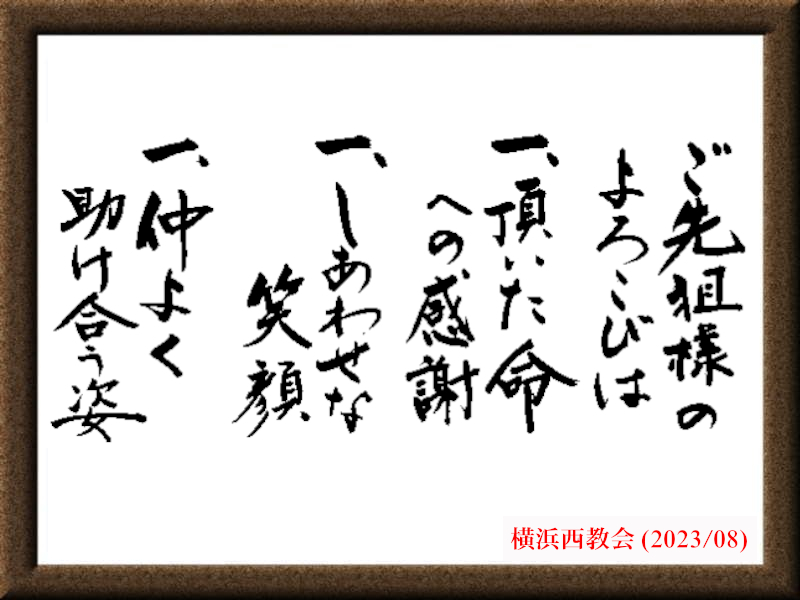 ご先祖様の
よろこびは
一、頂いた命
への感謝
一、しあわせな
笑顔
一、仲よく
助け合う姿
横浜西教会 (2023/08)